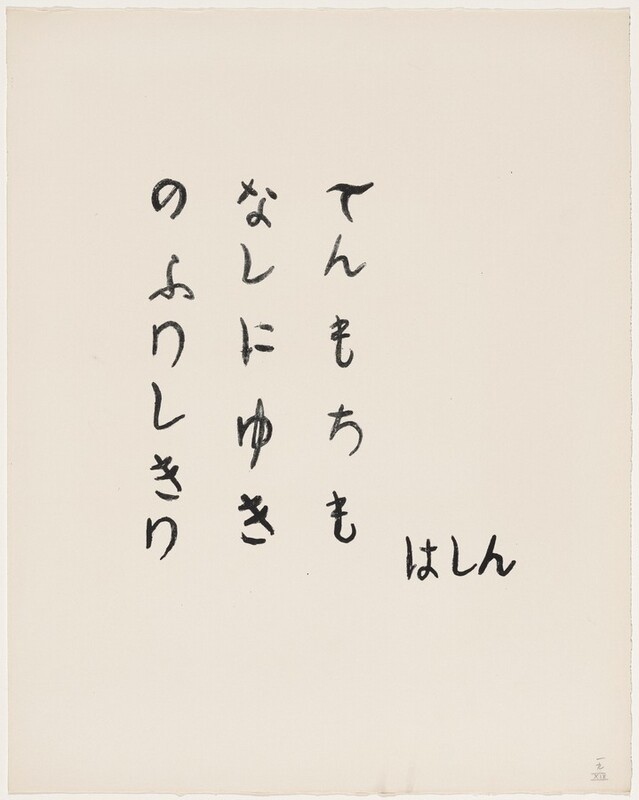 はしん
てんもちも
なしにゆき
のふりしきり
一九
XIX